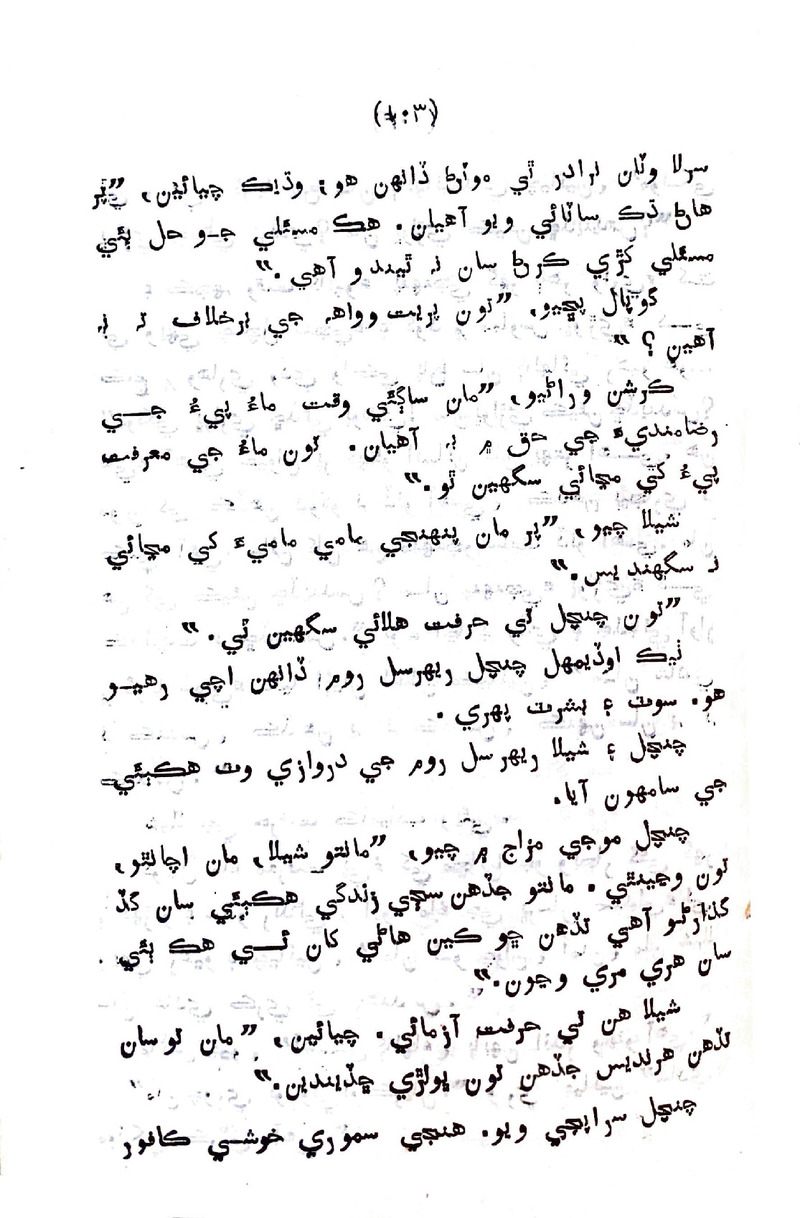 سرلا وٽان نرادر ٿي موٽڻ ڏانهن هو؛ وڌيڪ چيائين، ”پر
هاڻ ٿڪ ساٽائي ويو آهيان. هڪ مسئلي جو حل ٻئي
مسئلي کڙي ڪرڻ سان نہ ٿيندو آهي.“
گوپال پڇيو، ”تون پريت وواهہ جي برخلاف تہ نہ
آهين؟“
ڪرشن وراڻيو، ”مان ساڳئي وقت ماءُ پيءُ جي
رضامنديءَ جي حق ۾ بہ آهيان. تون ماءُ جي معرفت
پيءُ کي مڃائي سگهين ٿو.“
شيلا چيو، ”پر مان پنهنجي مامي ماميءَ کي مڃائي
نہ سگهنديس.“
”تون چنچل تي حرفت هلائي سگهين ٿي.“
ٺيڪ اوڏيمهل چنچل ريهرسل روم ڏانهن اچي رهيو
هو. سوٽ ۽ بشرٽ پهري.
چنچل ۽ شيلا ريهرسل روم جي دروازي وٽ هڪٻئي
جي سامهون آيا.
چنچل موجي مزاج ۾ چيو، ”مانتو شيلا، مان اچانٿو،
تون وڃينٿي. مانتو جڏهن سڄي زندگي هڪٻئي سان گڏ
گذارڻو آهي تڏهن ڇو ڪين هاڻي کان ئي هڪ ٻئي
سان هري مري وڃون.“
شيلا هن تي حرفت آزمائي. چيائين، ”مان توسان
تڏهن هرنديس جڏهن تون ڀولڙي ڇڏيندين.“
چنچل سراپجي ويو. هنجي سموري خوشي ڪافور